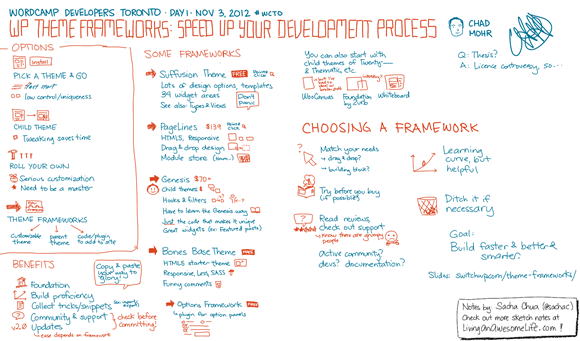 WORDCAMP DEVELOPERS TORONTO · DAY 1 · NOV 3, 2012 #WCTO
WP THEME FRAMEWORKS: SPEED UP YOUR DEVELOPMENT PROCESS
CHAD
MOHR
Q: Thesis?
A: Licence controversy, so...
OPTIONS
Install
PICK A THEME & GO
Fast start
low control/uniqueness
CHILD THEME
Tweaking saves time
ROLL YOUR OWN
Serious customization
Need to be a master
THEME FRAMEWORKS
Customizable
theme
parent
theme
code/plugin
to add to site
BENEFITS
Copy & paste
your way to
glory!
Foundation
Build proficiency
Collect tricks/snippets
Community & support
v2.0 Updates
check before
committing!
ease depends on framework
SOME FRAMEWORKS
Suffusion Theme FREE
Lots of design options, templates
39 widget areas
See also: Types & Views
Don't
panic
PageLines $139
HTML5, Responsive
Drag & drop design
Module store
Genesis $70+
Child themes
Hooks & filters
Have to learn the Genesis way
Just the code that makes it unique
Great widgets (ex: Featured posts)
Bones Base Theme FREE
HTML5 starter theme
Responsive, Less, SASS
Funny comments
Options Framework FREE
plugin for option panels
You can also start with
child themes of Twenty—
& Thematic, etc.
WooCanvas
Foundation
by Zurb
Whiteboard
CHOOSING A FRAMEWORK
Match your needs
drag & drop?
building block?
Try before you buy
(if possible)
Read reviews,
check out support
know there are grumpy
people
active community?
devs? documentation?
Learning
curve, but
helpful
Ditch it if
necessary
Goal:
Build faster & better &
smarter.
Slides: switchup.com/theme-frameworks/
Notes by Sacha Chua (@sachac)
Check out more sketch notes at
LivingAnAwesomeLife.com!